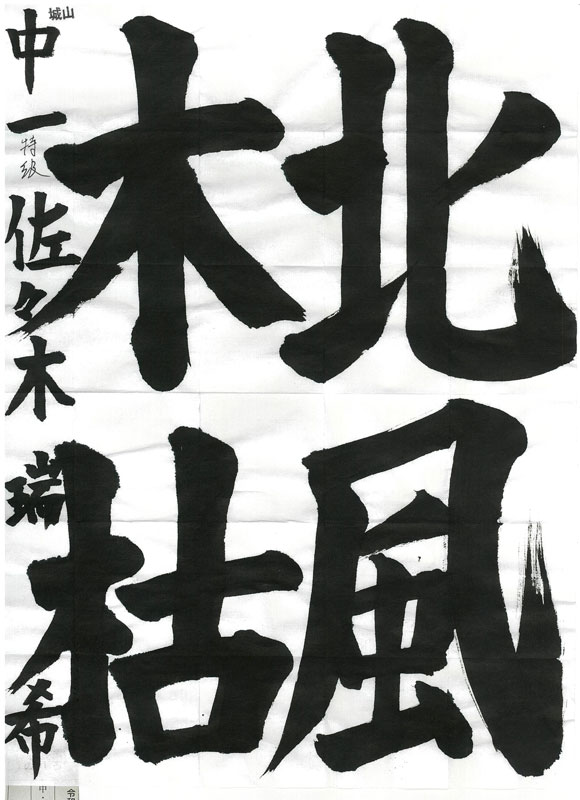 北風
木枯
城山
中一 特級 佐々木 瑞希